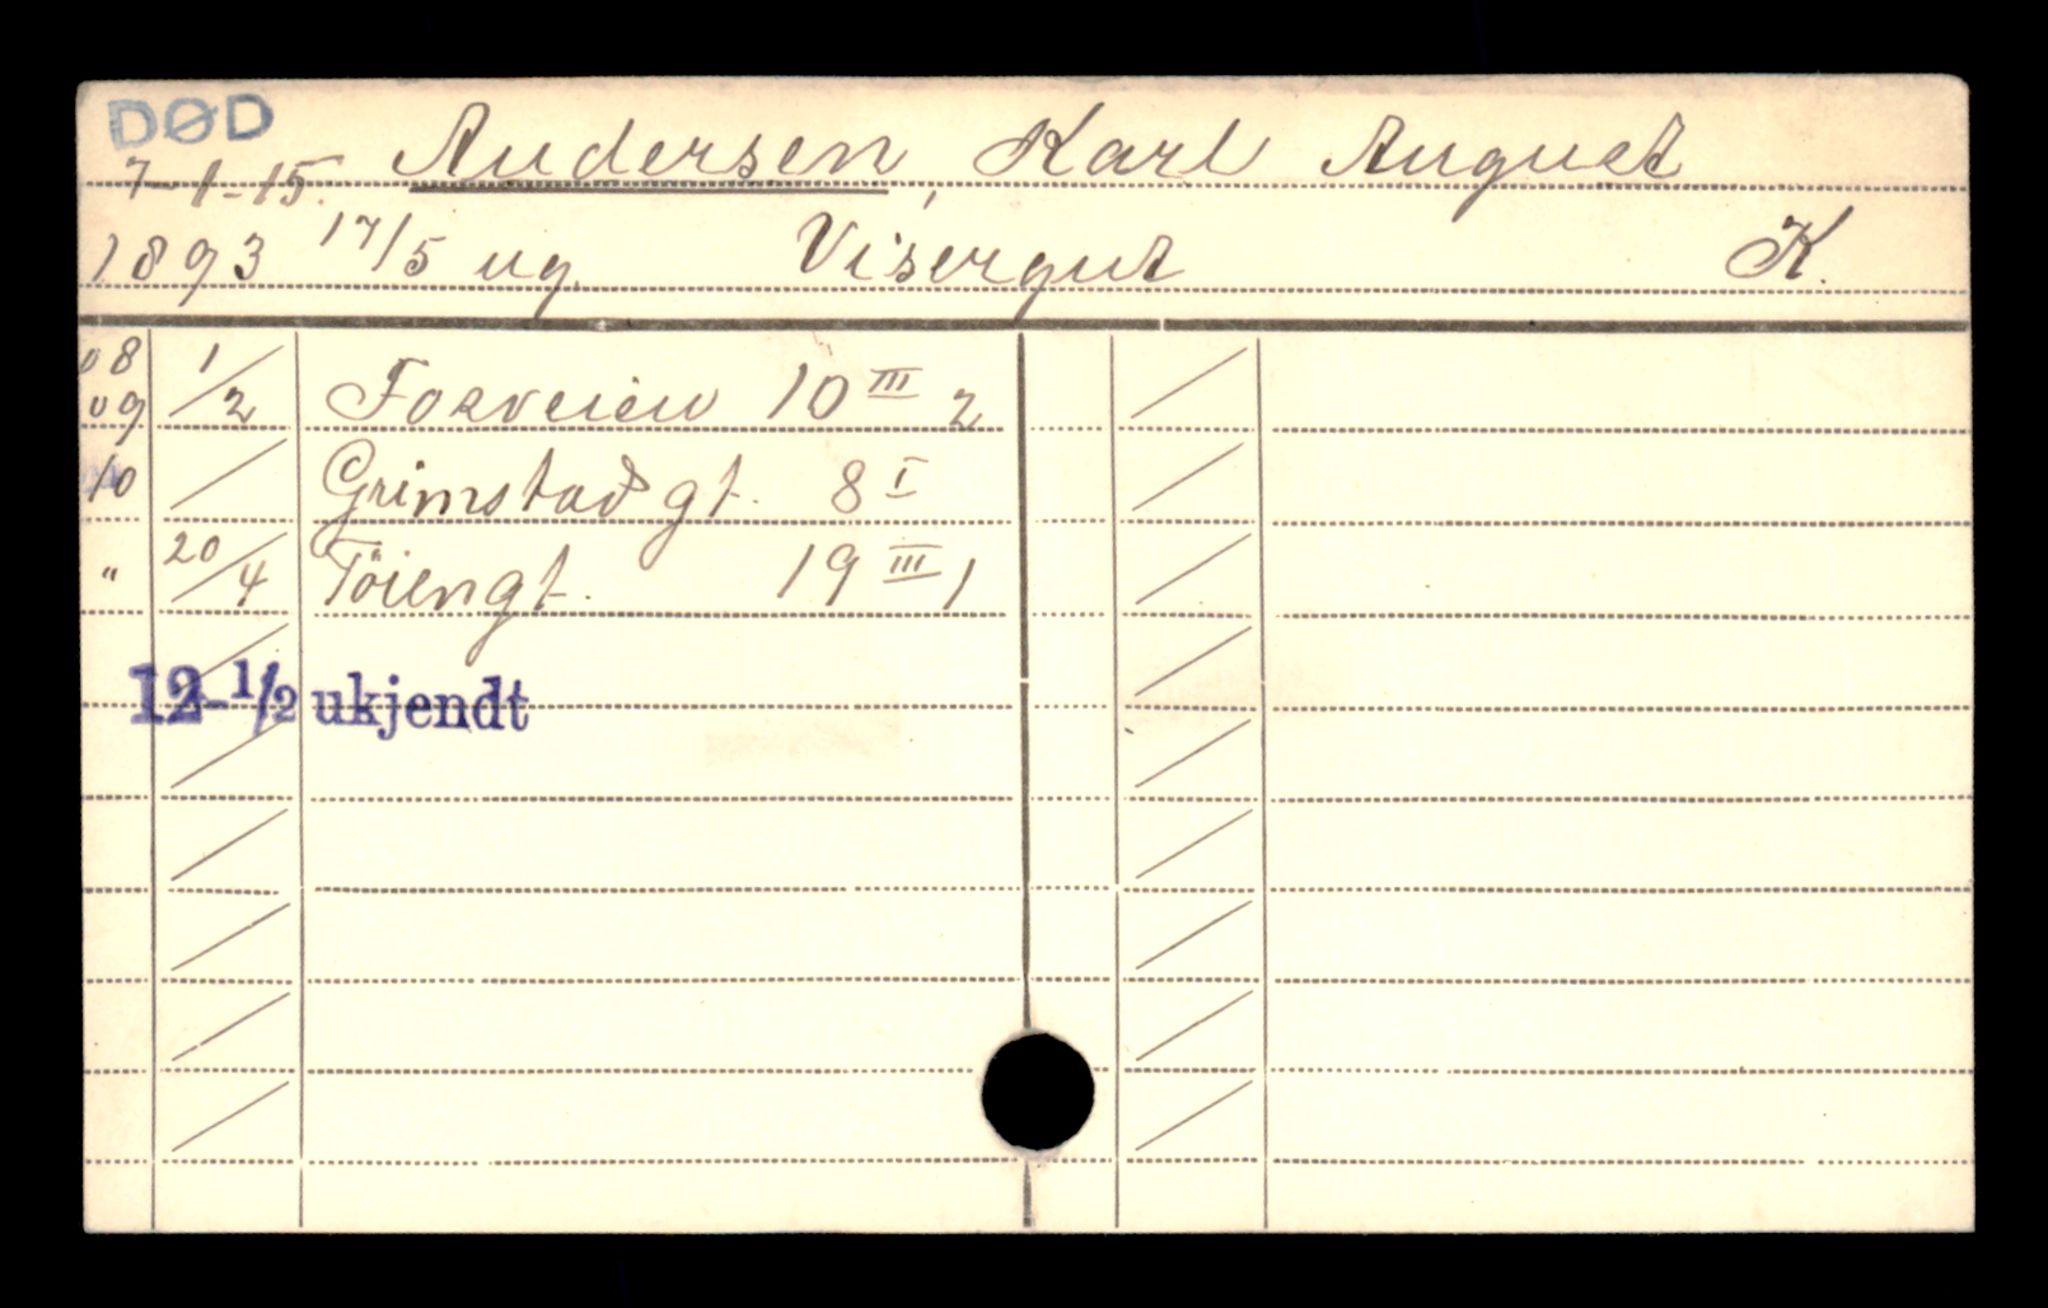 DØD
7-1-15. Andersen, Karl August
1893 17/5 ug. Visergut K.
08
09 1/2 Fosveien 10 III 2
10 / Grimstad gt. 8 I
" 20/4 Töiengt. 19 III 1
12-1/2 ukjendt